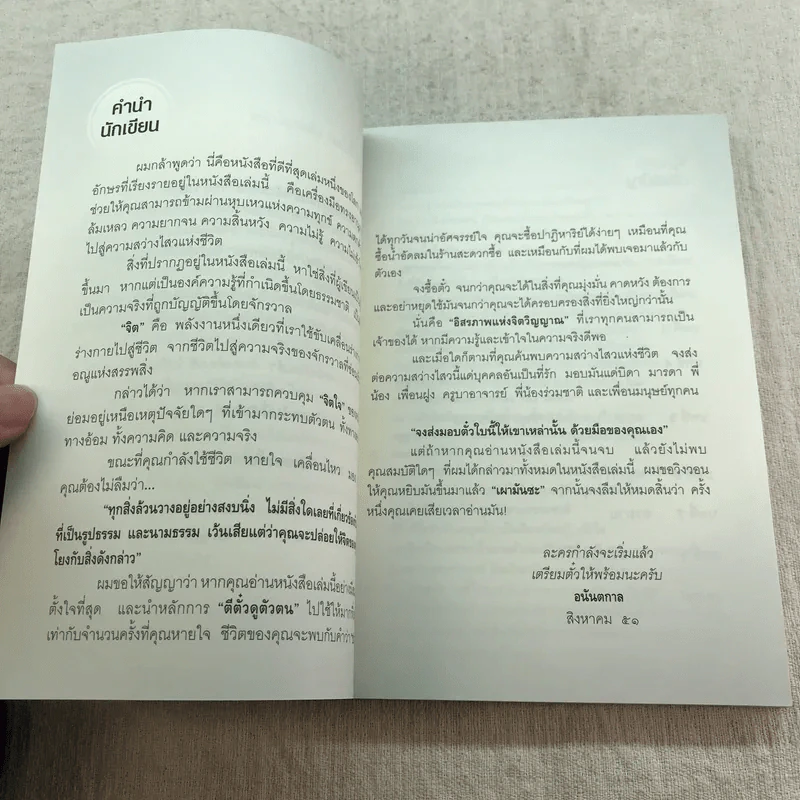 คำนำ
นักเขียน
ผมกล้าพูดว่า นี่คือหนังสือที่ดีที่สุดเล่มหนึ่งของ
อักษรที่เรียงรายอยู่ในหนังสือเล่มนี้ คือเครื่องมือ
ช่วยให้คุณสามารถข้ามผ่านหุบเหวแห่งความทุกข์
ล้มเหลว ความยากจน ความสิ้นหวัง ความไม่รู้
ไปสู่ความสว่างไสวแห่งชีวิต
สิ่งที่ปรากฏอยู่ในหนังสือเล่มนี้ หาใช่สิ่งที่ผู้เขียน
ขึ้นมา หากแต่เป็นองค์ความรู้ที่กำเนิดขึ้นโดยธรรมชาติ
เป็นความจริงที่ถูกบัญญัติขึ้นโดยจักรวาล
“จิต” คือ พลังงานหนึ่งเดียวที่เราใช้ขับเคลื่อน
ร่างกายไปสู่ชีวิต จากชีวิตไปสู่ความจริงของจักรวาลที่
อณูแห่งสรรพสิ่ง
กล่าวได้ว่า หากเราสามารถควบคุม “จิตใจ”
ย่อมอยู่เหนือเหตุปัจจัยใดๆ ที่เข้ามากระทบตัวตน
ทางอ้อม ทั้งความคิด และความจริง
ขณะที่คุณกำลังใช้ชีวิต หายใจ เคลื่อนไหว
คุณต้องไม่ลืมว่า...
“ทุกสิ่งล้วนวางอยู่อย่างสงบนิ่ง ไม่มีสิ่งใดเลยที่เกี่ยวข้อง
ที่เป็นรูปธรรม และนามธรรม เว้นเสียแต่ว่าคุณจะปล่อยให้จิต
โยงกับสิ่งดังกล่าว”
ผมขอให้สัญญาว่า หากคุณอ่านหนังสือเล่มนี้อย่าง
ตั้งใจที่สุด และนำหลักการ “ตีตั๋วดูตัวตน” ไปใช้ให้มาก
เท่ากับจำนวนครั้งที่คุณหายใจ ชีวิตของคุณจะพบกับคำว่า
ได้ทุกวันจนน่าอัศจรรย์ใจ คุณจะซื้อปาฏิหาริย์ได้ง่ายๆ เหมือนที่คุณ
ซื้อน้ำอัดลมในร้านสะดวกซื้อ และเหมือนกับที่ผมได้พบเจอมาแล้วกับ
ตัวเอง
จงซื้อตั๋ว จนกว่าคุณจะได้ในสิ่งที่คุณมุ่งมั่น คาดหวัง ต้องการ
และอย่าหยุดใช้มันจนกว่าคุณจะได้ครอบครองสิ่งที่ยิ่งใหญ่กว่านั้น
นั่นคือ “อิสรภาพแห่งจิตวิญญาณ” ที่เราทุกคนสามารถเป็น
เจ้าของได้ หากมีความรู้และเข้าใจในความจริงดีพอ
และเมื่อใดก็ตามที่คุณค้นพบความสว่างไสวแห่งชีวิต จงส่ง
ต่อความสว่างไสวนี้แด่บุคคลอันเป็นที่รัก มอบมันแด่บิดา มารดา พี่
น้อง เพื่อนฝูง ครูบาอาจารย์ พี่น้องร่วมชาติ และเพื่อนมนุษย์ทุกคน
“จงส่งมอบตั๋วใบนี้ให้เขาเหล่านั้น ด้วยมือของคุณเอง”
แต่ถ้าหากคุณอ่านหนังสือเล่มนี้จนจบ แล้วยังไม่พบ
คุณสมบัติใดๆ ที่ผมได้กล่าวมาทั้งหมดในหนังสือเล่มนี้ ผมขอวิงวอน
ให้คุณหยิบมันขึ้นมาแล้ว “เผามันซะ” จากนั้นจงลืมให้หมดสิ้นว่า ครั้ง
หนึ่งคุณเคยเสียเวลาอ่านมัน!
ละครกำลังจะเริ่มแล้ว
เตรียมตั๋วให้พร้อมนะครับ
อนันตกาล
สิงหาคม ๕๑